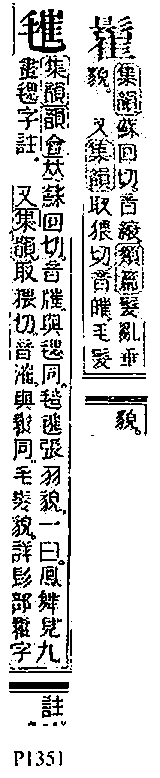 集韻蘇回切音毸類篇髮亂垂
貌。又集韻取猥切音皠毛髮
貌。
集韻韻會𠀤蘇回切音膗與毸同毰毸張羽貌一曰鳳舞見九
畫毸字註。又集韻取猥切音漼與同毛髮貌詳髟部字
註
P1351